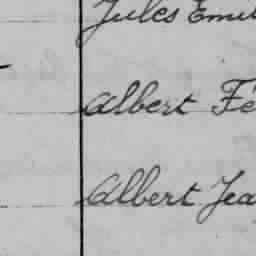 Jules Emil
Albert Fé
Albert Jea